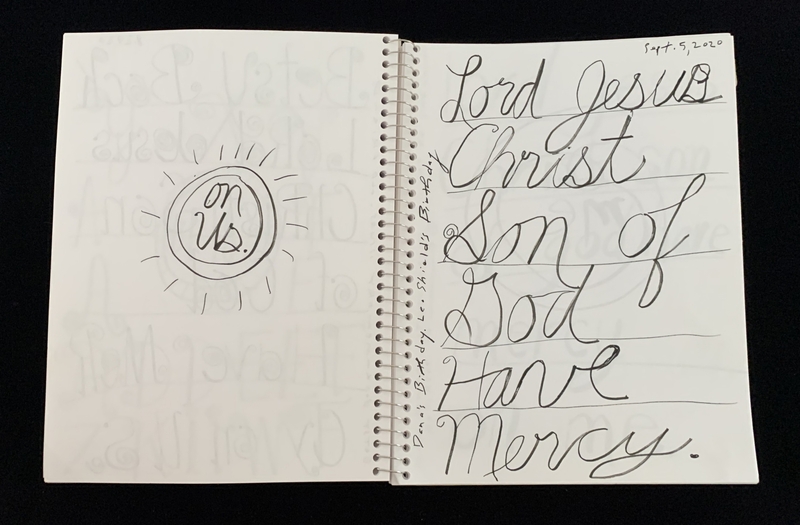 on
us.
Sept. 5, 2020
Lord Jesus
Christ
Son of
God
Have
Mercy.
Dana's Birthday. Leo Shield's Birthday